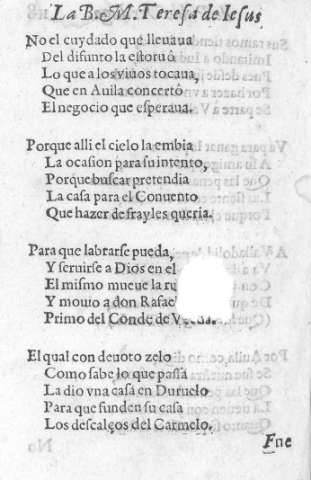 La B. M. Teresa de Iesus
No el cuydado que lleuaua
Del difunto la estoruô
Lo que a los viuos tocaua,
Que en Auila concertô
El negocio que esperaua.
Porque alli el cielo la embia
La ocasion para su intento,
Porque buscar pretendia
La casa para el Conuento
Que hazer de frayles queria.
Para que labrarse pueda,
Y seruirse a Dios en el
El mismo mueue la
Y mouio a don Rafael
Primo del Conde de
El qual con deuoto zelo
Como sabe lo que passa
La dio vna casa en Duruelo
Para que funden su casa
Los descalços del Carmelo.
Fue